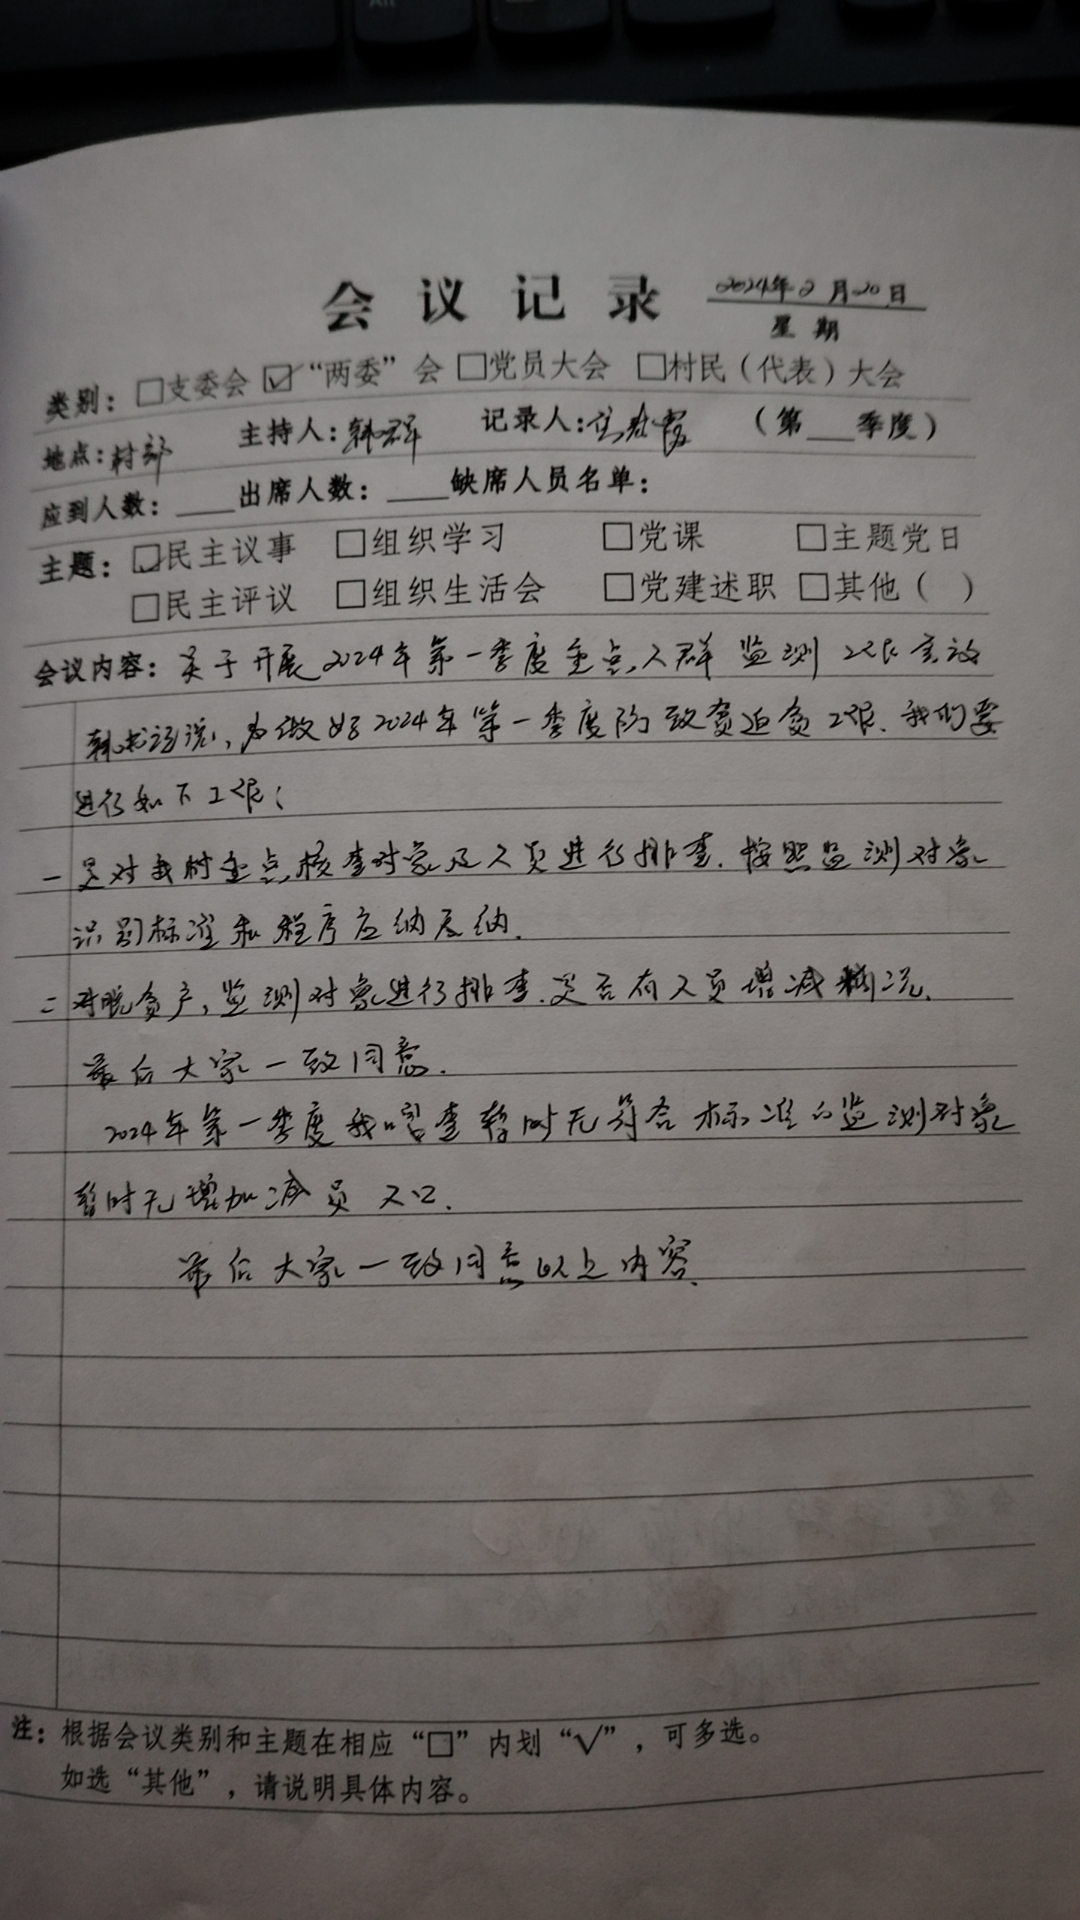 会议记录 2024年2月20日
星期
类别：□支委会 ☑“两委”会 □党员大会 □村民（代表）大会
地点：村部 主持人：韩群 记录人： （第___季度）
应到人数：____出席人数：____缺席人员名单：
主题：☑民主议事 □组织学习 □党课 □主题党日
□民主评议 □组织生活会 □党建述职 □其他（ ）
会议内容：关于开展2024年第一季度重点人群监测工作会议
韩书记说，为做好2024年第一季度防致贫返贫工作，我们要
进行如下工作：
一是对我村重点核查对象及人员进行排查，按照监测对象
识别标准和程序应纳尽纳。
二对脱贫户，监测对象进行排查，是否有人员增减情况。
最后大家一致同意。
2024年第一季度我查暂时无符合标准的监测对象
暂时无增加减员人口。
最后大家一致同意以上内容。
注：根据会议类别和主题在相应“□”内划“√”，可多选。
如选“其他”，请说明具体内容。